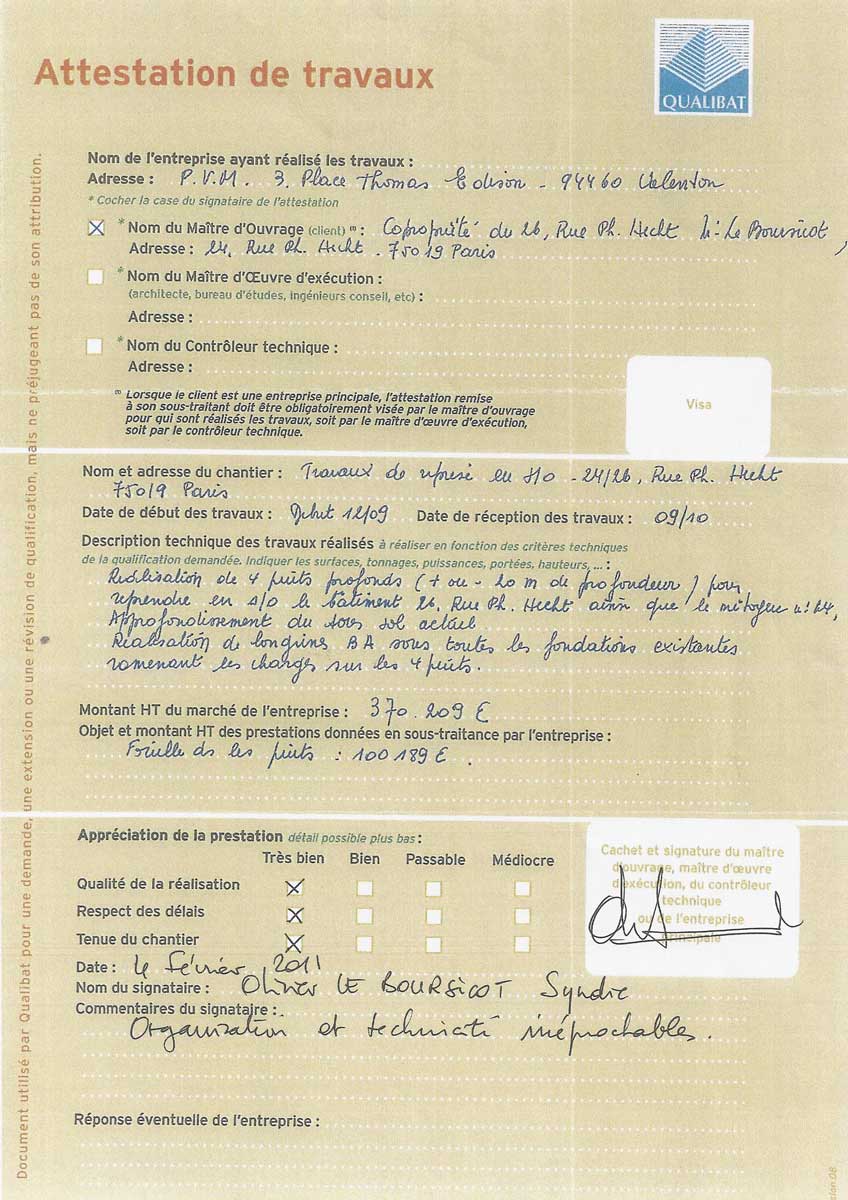 Attestation de travaux
QUALIBAT
Nom de l'entreprise ayant réalisé les travaux :
Adresse : P.V.M. 3, Place Thomas Edison - 94460 Valenton
* Cocher la case du signataire de l'attestation
* Nom du Maître d'Ouvrage (client) (1) : Copropriété du 26, Rue Ph. Hecht Mr Le Boursicot,
Adresse : 24, Rue Ph. Hecht - 75019 Paris
* Nom du Maître d'Œuvre d'exécution :
(architecte, bureau d'études, ingénieurs conseil, etc) :
Adresse :
* Nom du Contrôleur technique :
Adresse :
(1) Lorsque le client est une entreprise principale, l'attestation remise
à son sous-traitant doit être obligatoirement visée par le maître d'ouvrage
pour qui sont réalisés les travaux, soit par le maître d'œuvre d'exécution,
soit par le contrôleur technique.
Visa
Nom et adresse du chantier : Travaux de reprise en s/o - 24/26, Rue Ph. Hecht
75019 Paris
Date de début des travaux : Début 12/09 Date de réception des travaux : 09/10
Description technique des travaux réalisés à réaliser en fonction des critères techniques
de la qualification demandée. Indiquer les surfaces, tonnages, puissances, portées, hauteurs, ... :
Réalisation de 4 puits profonds (+ ou - 20 m de profondeur) pour
reprendre en s/o le bâtiment 26, Rue Ph. Hecht ainsi que le mitoyen n° 24,
Approfondissement du sous sol actuel
Réalisation de longrines BA sous toutes les fondations existantes
ramenant les charges sur les 4 puits.
Montant HT du marché de l'entreprise : 370.209 €
Objet et montant HT des prestations données en sous-traitance par l'entreprise :
Fouille ds les puits : 100 189 €.
Appréciation de la prestation détail possible plus bas :
Très bien Bien Passable Médiocre
Qualité de la réalisation
Respect des délais
Tenue du chantier
Cachet et signature du maître
d'ouvrage, maître d'œuvre
d'exécution, du contrôleur
technique
ou de l'entreprise
principale
Date : 4 Février 2011
Nom du signataire : Olivier LE BOURSICOT Syndic
Commentaires du signataire :
Organisation et technicité inéprochables.
Réponse éventuelle de l'entreprise :
Document utilisé par Qualibat pour une demande, une extension ou une révision de qualification, mais ne préjugeant pas de son attribution.